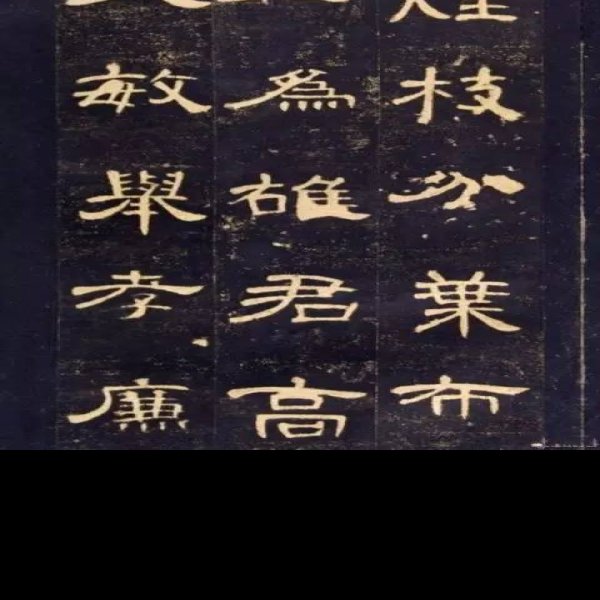 枝分葉布
為雄君高
敏舉孝廉